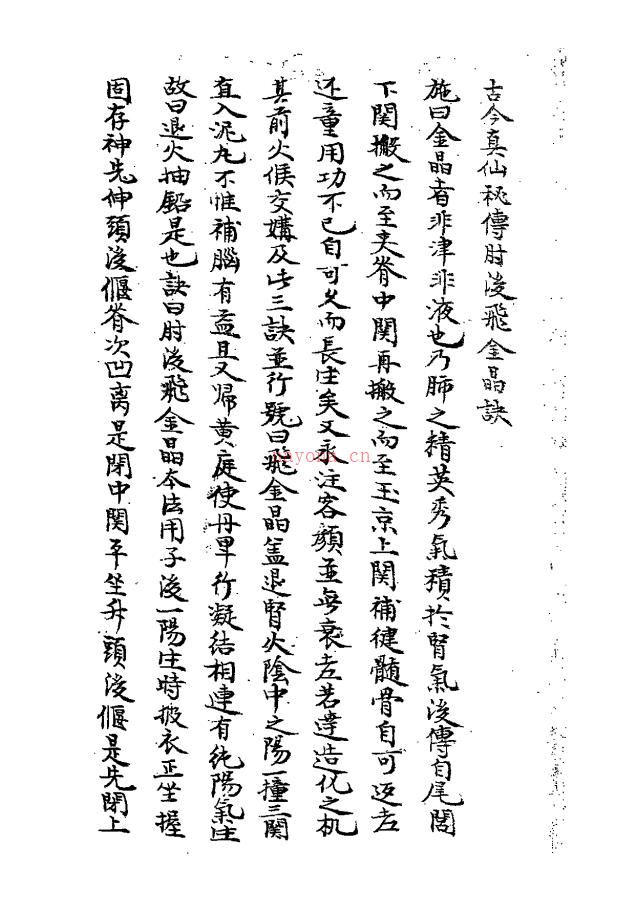 古今真仙秘傳肘後飛金晶訣
施曰金晶者非津非液也乃肺之精英秀氣積於腎氣後傳自尾閭
下関搬之而至夹脊中関再搬之而至玉京上関補健髓骨自可返老
还童用功不已自可久而長生矣又永注容顔並無衰老若達造化之机
其前火候交媾及此三訣並行號曰飛金晶盖退腎火陰中之陽一撞三関
直入泥丸不惟補腦有益且又歸黄庭使丹早行凝結相連有純陽氣生
故曰退火抽鉛是也訣曰肘後飛金晶本法用子後一陽生時披衣正坐握
固存神先伸頭後偃脊次凹离是閉中関平坐升頭後偃是先閉上
nayona.cn